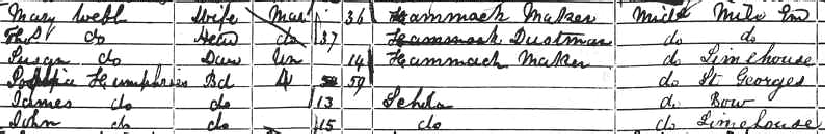 Mary Webb Wife Mar 36 Hammock Maker Midx Mile End
Thos do Head do 37 Hammock Dustman do do
Susan do Daur Un 14 Hammock Maker do Limehouse
Sophia Humphries Bd 59 do St Georges
James do do 13 Schlr do Bow
John do do 15 do do Limehouse